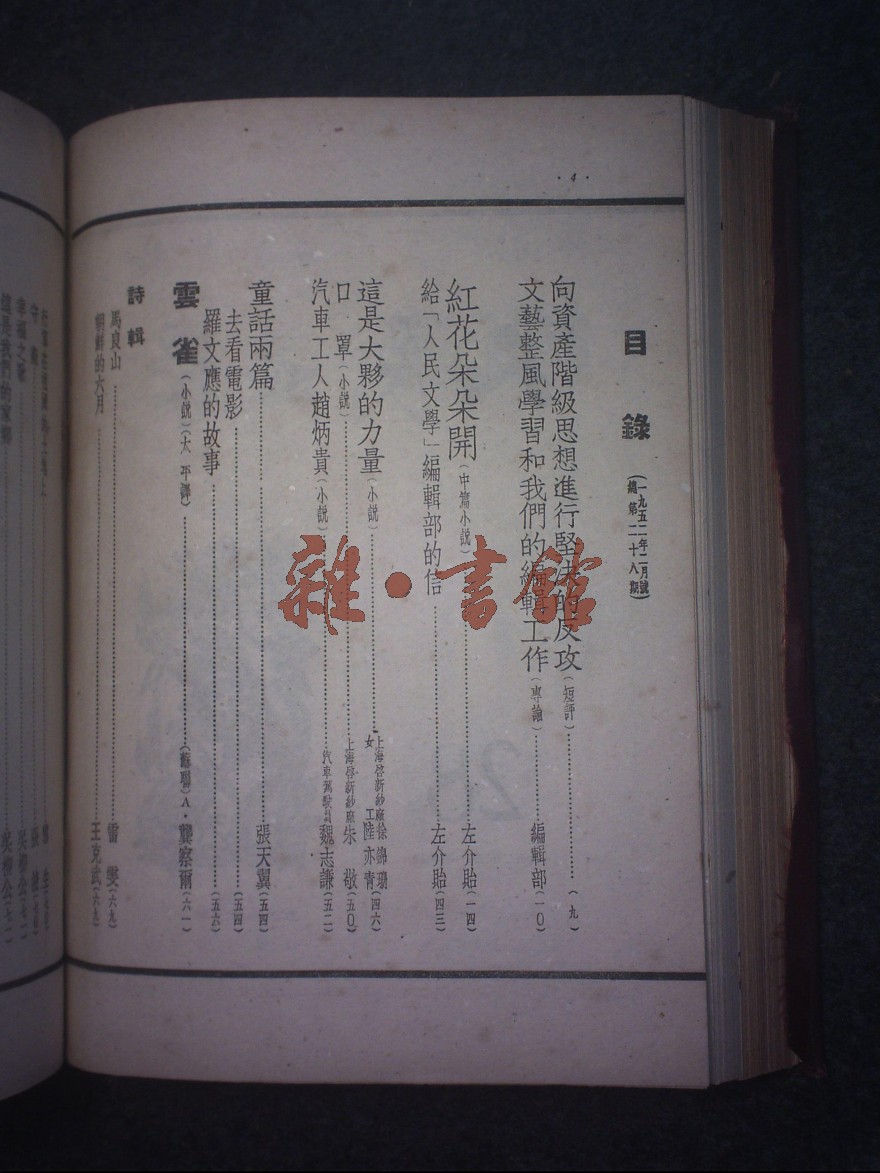 ·4·
目錄
(一九五二年二月號)
(總第二十八期)
向資產階級思想進行堅決的反攻(短評)……(九)
文藝整風學習和我們的編輯工作(專論)……編輯部(一〇)
紅花朵朵開(中篇小說)……左介貽(一四)
給「人民文學」編輯部的信……左介貽(四三)
這是大夥的力量(小說)……上海啓新紗廠女工徐錦珊 陸亦青(四六)
口罩(小說)……上海啓新紗廠朱敬(五〇)
汽車工人趙炳貴(小說)……汽車駕駛員魏志謙(五二)
童話兩篇……張天翼(五四)
去看電影……(五四)
羅文應的故事……(五六)
雲雀(小說)(太平譯)……(蘇聯)A·龔察爾(六一)
詩輯
馬良山……雷雯(六九)
朝鮮的六月……王克武(六九)
守衛
幸福之歌
這是我們的
雜·書館